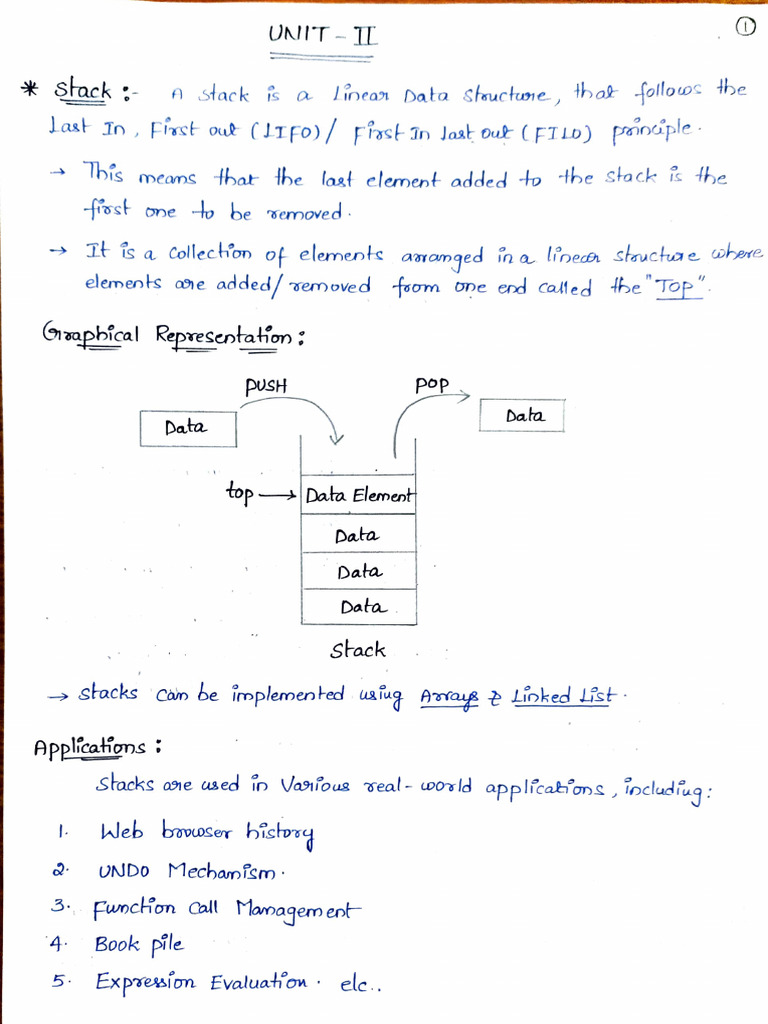 ①
UNIT - II
* Stack :- A stack is a linear Data Structure, that follows the
Last In, First out (LIFO) / First In last out (FILO) principle.
→ This means that the last element added to the stack is the
first one to be removed.
→ It is a collection of elements arranged in a linear structure where
elements are added/removed from one end called the "Top".
Graphical Representation :
PUSH
POP
Data
Data
top → Data Element
Data
Data
Data
Stack
→ Stacks can be implemented using Arrays & Linked List.
Applications :
Stacks are used in Various real-world applications, including:
1. Web browser history
2. UNDO Mechanism.
3. Function Call Management
4. Book pile
5. Expression Evaluation. etc..